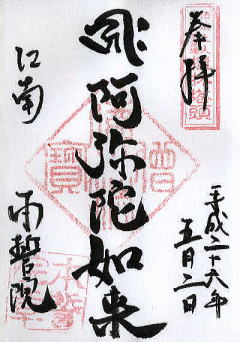 奉拝
平成二十六年
五月二日
阿弥陀如来
江南
本誓院
僧
寶